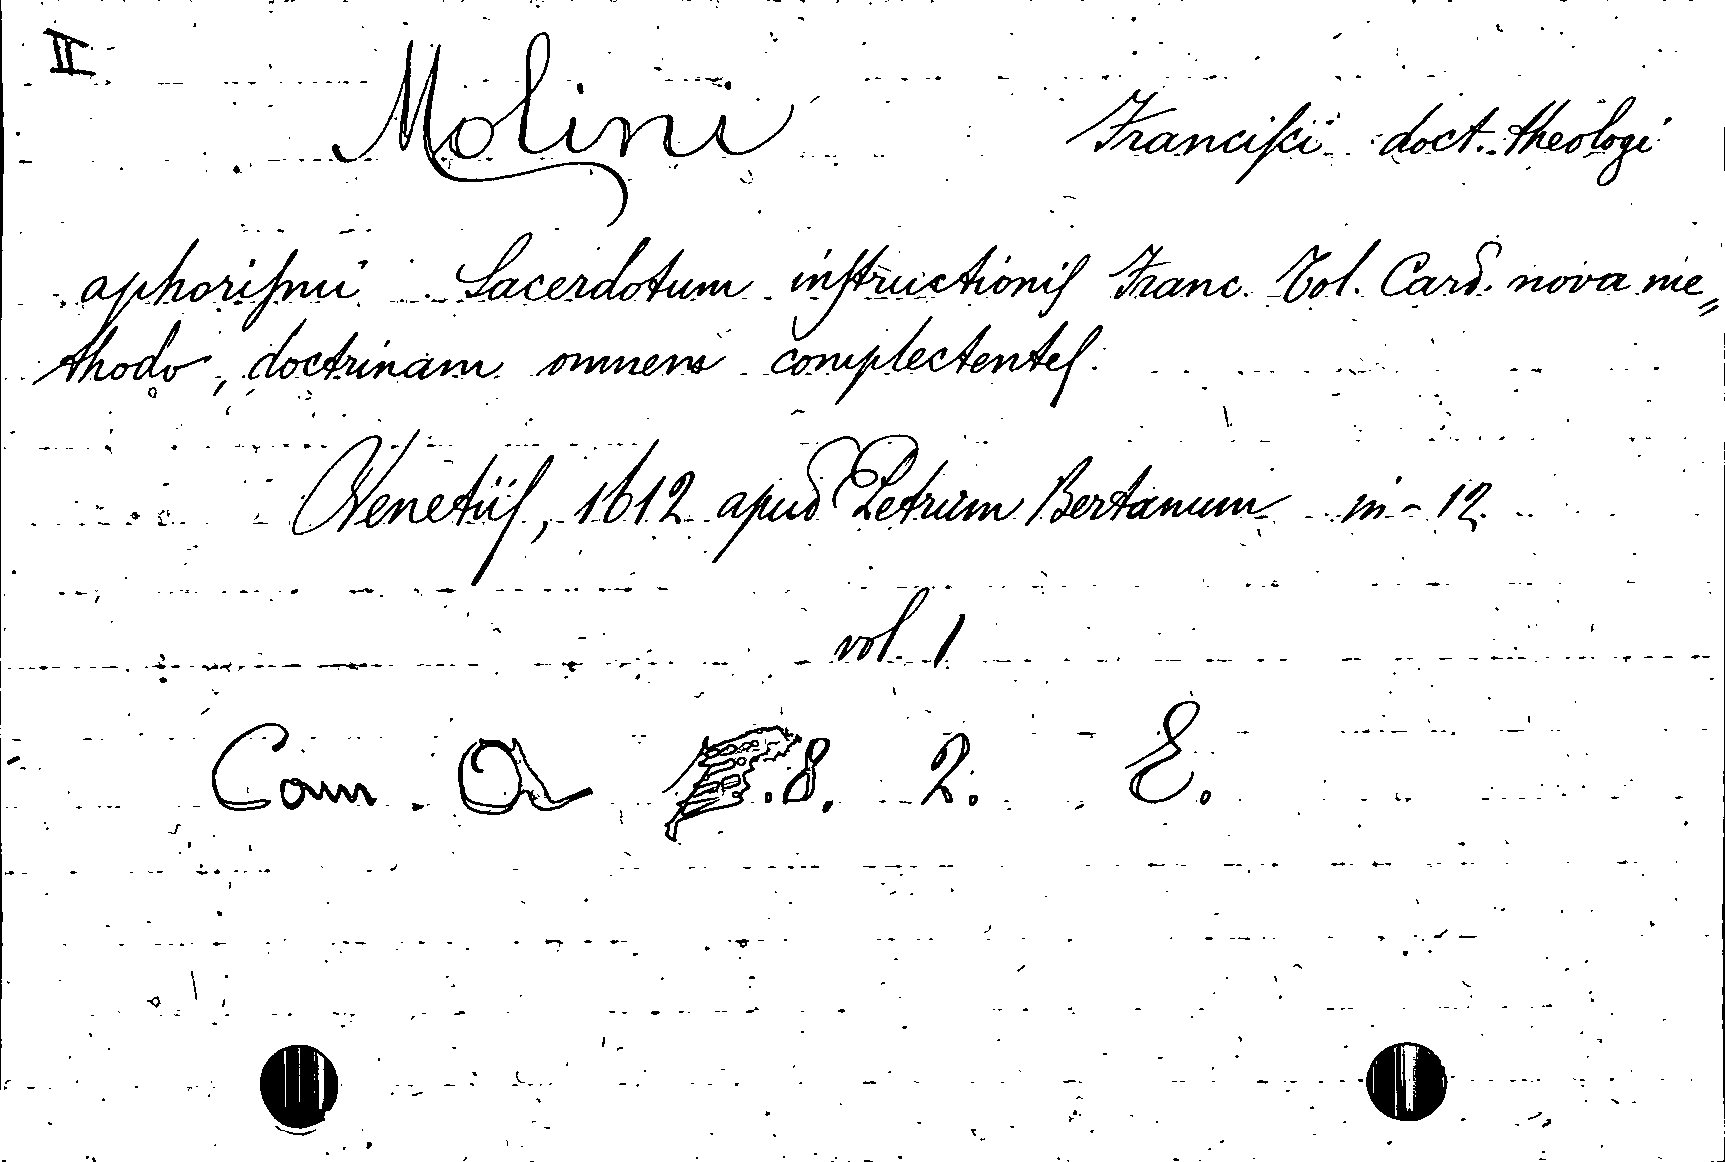 II
Molini Franciſci doct. theologi
aphoriſmi Sacerdotum inſtructioniſ Franc. Tol. Card. nova me„
thodo, doctrinam omnem complectenteſ.
Venetiiſ, 1612 apud Petrum Bertanum in-12.
vol. 1
Cam. .8. 2. E.